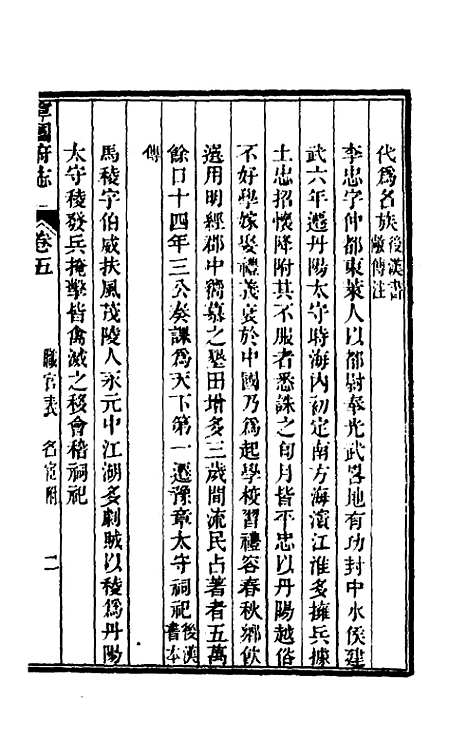 代爲名族後漢書
巖傳注
李忠字仲都東萊人以都尉奉光武畧地有功封中水侯建
武六年遷丹陽太守時海內初定南方海濱江淮多擁兵據
土忠招懷降附其不服者悉誅之旬月皆平忠以丹陽越俗
不好學嫁娶禮義衰於中國乃爲起學校習禮容春秋鄉飲
選用明經郡中嚮慕之墾田增多三歲間流民占著者五萬
餘口十四年三公奏課爲天下第一遷豫章太守祠祀後漢
書本
傳
馬稜字伯威扶風茂陵人永元中江湖多劇賊以稜爲丹陽
太守稜發兵掩擊皆禽滅之移會稽祠祀
寧國府志
卷五
職官表 名宦附
二